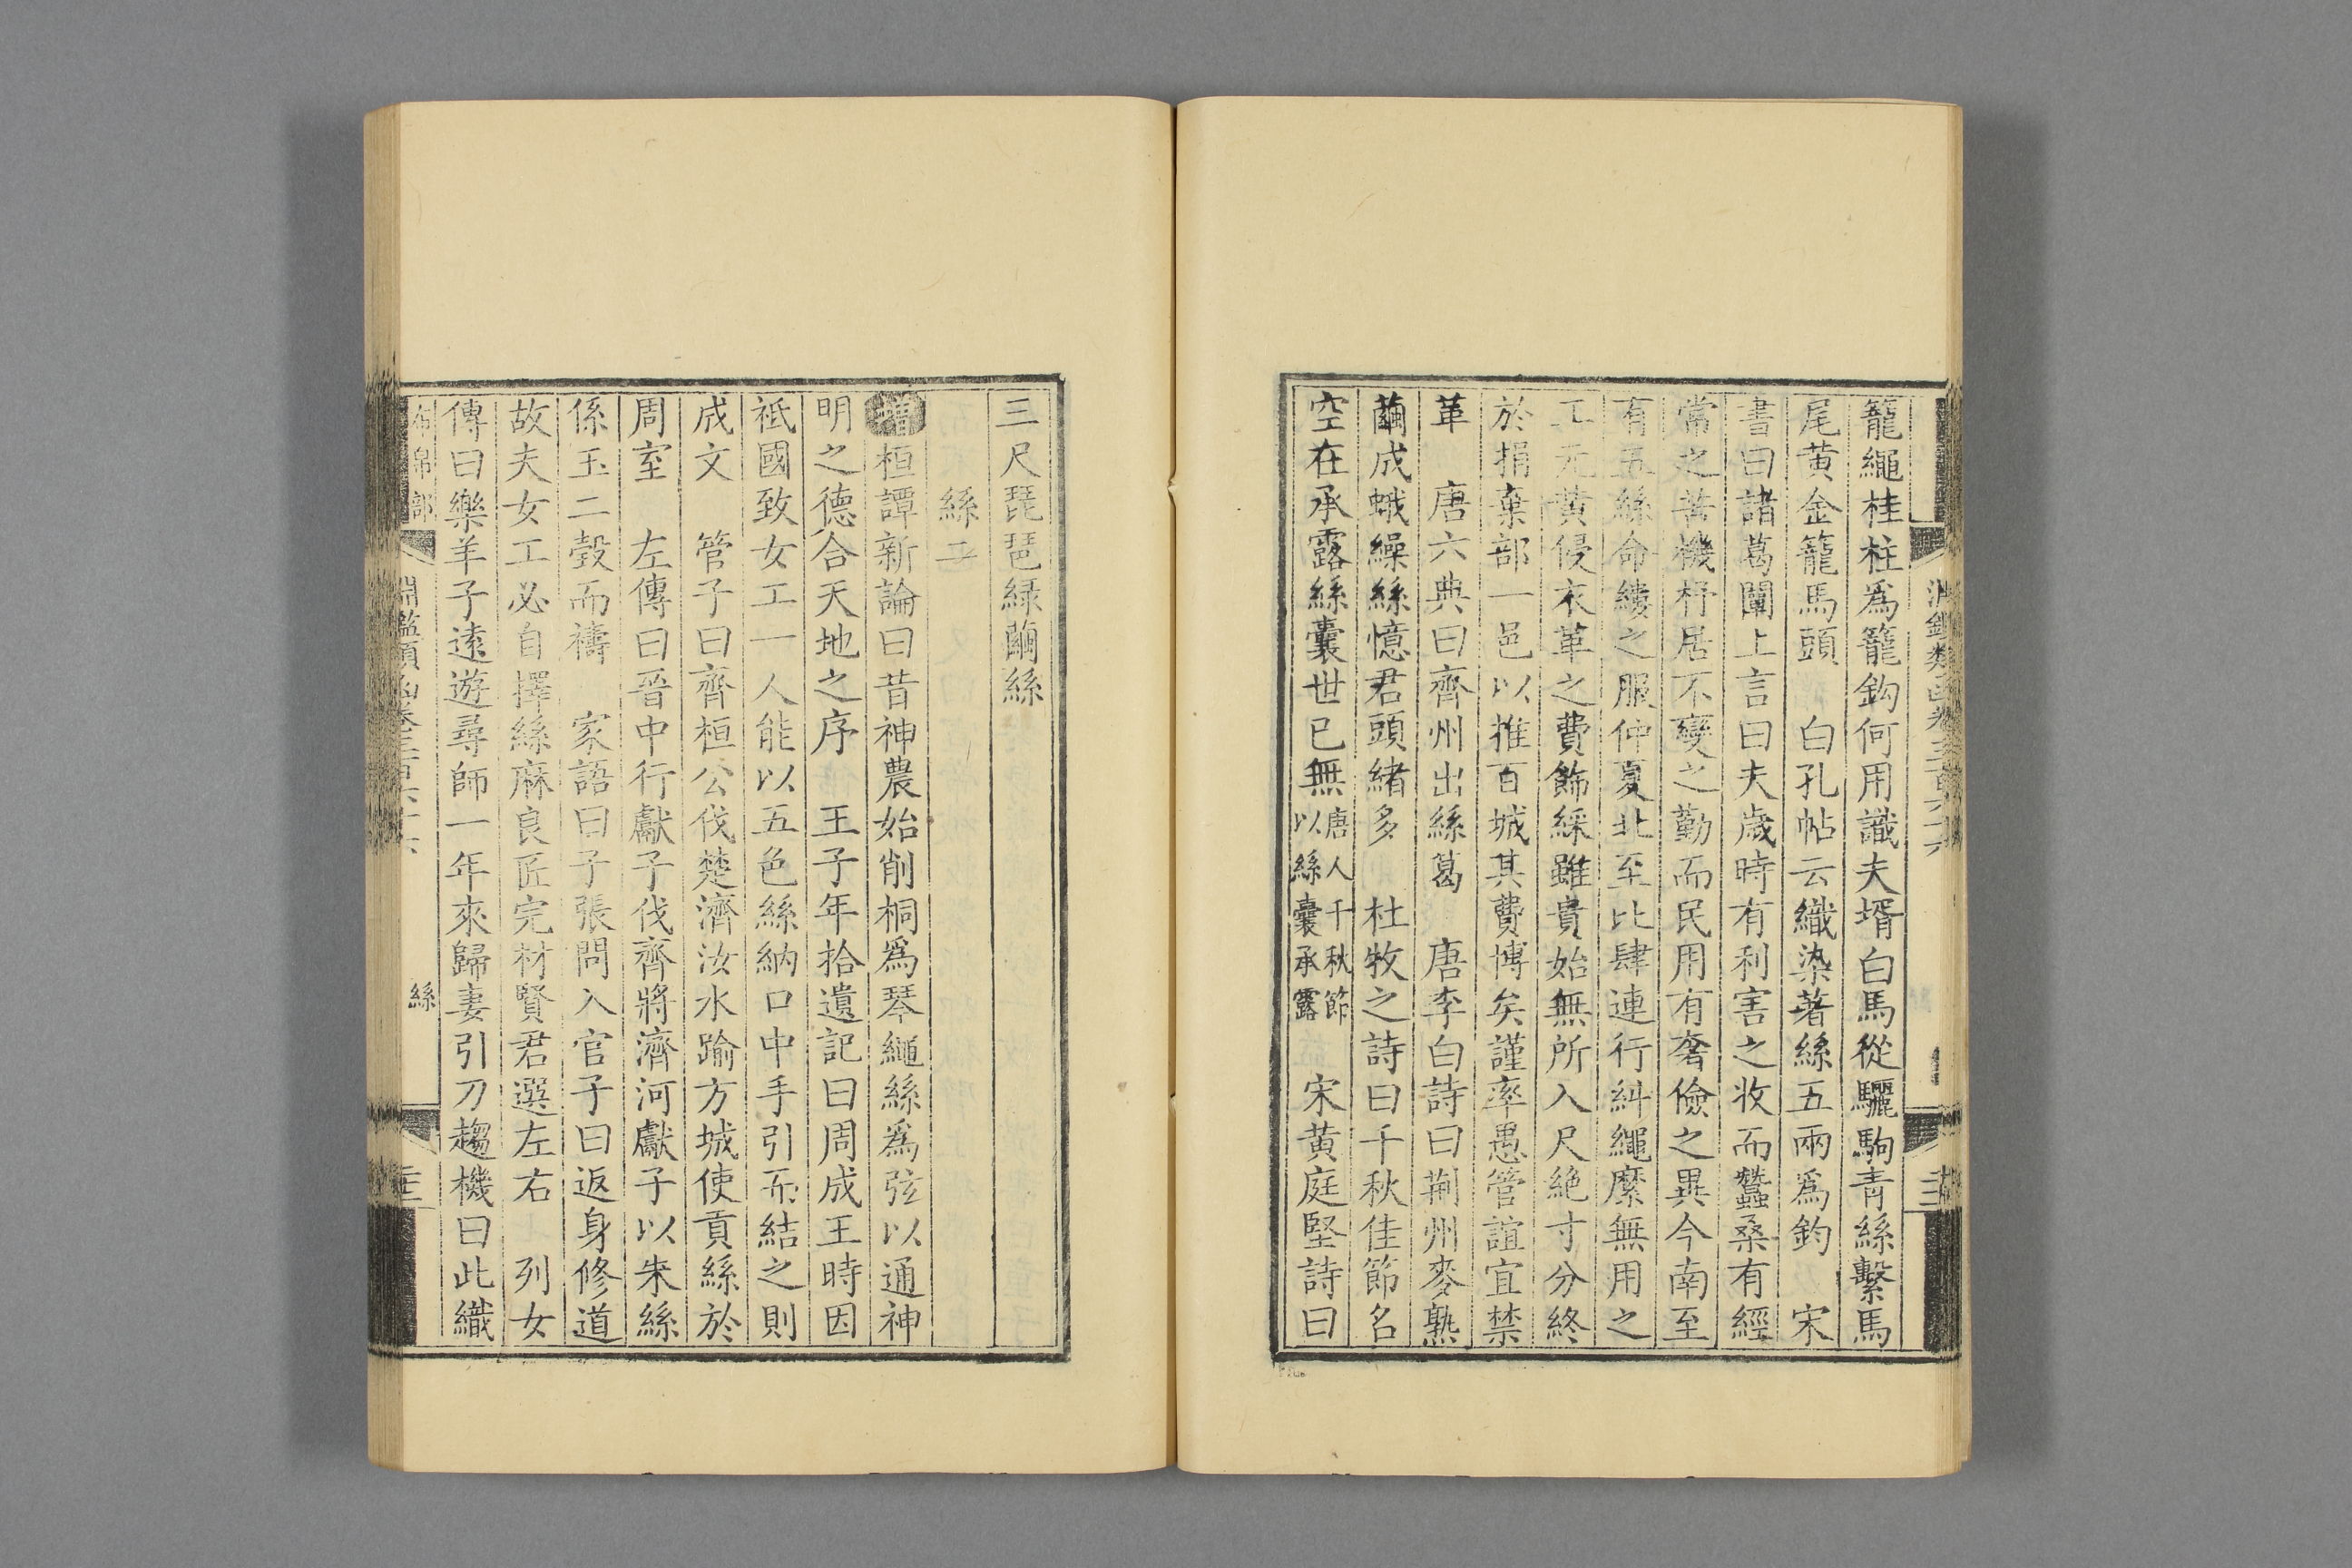 籠繩桂柱爲籠鈎何用識夫壻白馬從驪駒青絲繫馬
尾黄金籠馬頭　白孔帖云織染著絲五兩爲釣　宋
書曰諸葛闡上言曰夫歲時有利害之收而蠶桑有經
常之苦機杼居不變之勤而民用有奢儉之異今南至
有五絲命縷之服仲夏北至比肆連行糾繩縻無用之
工元黄侵衣革之費飾綵雖貴始無所入尺絶寸分終
於捐棄部一邑以推百城其費博矣謹率愚管誼宜禁
革　唐六典曰齊州出絲葛　唐李白詩曰荆州麥熟
繭成蛾繰絲憶君頭緒多　杜牧之詩曰千秋佳節名
空在承露絲囊世已無唐人千秋節以絲囊承露　宋黄庭堅詩曰
三尺琵琶緑繭絲
絲二
增桓譚新論曰昔神農始削桐爲琴繩絲爲弦以通神
明之德合天地之序　王子年拾遺記曰周成王時因
祇國致女工一人能以五色絲納口中手引而結之則
成文　管子曰齊桓公伐楚濟汝水踰方城使貢絲於
周室　左傳曰晉中行獻子伐齊將濟河獻子以朱絲
係玉二瑴而禱　家語曰子張問入官子曰返身修道
故夫女工必自擇絲麻良匠完材賢君選左右　列女
傳曰樂羊子遠遊尋師一年來歸妻引刀趨機曰此織
布帛部
淵鑑類函卷三百六十六
絲